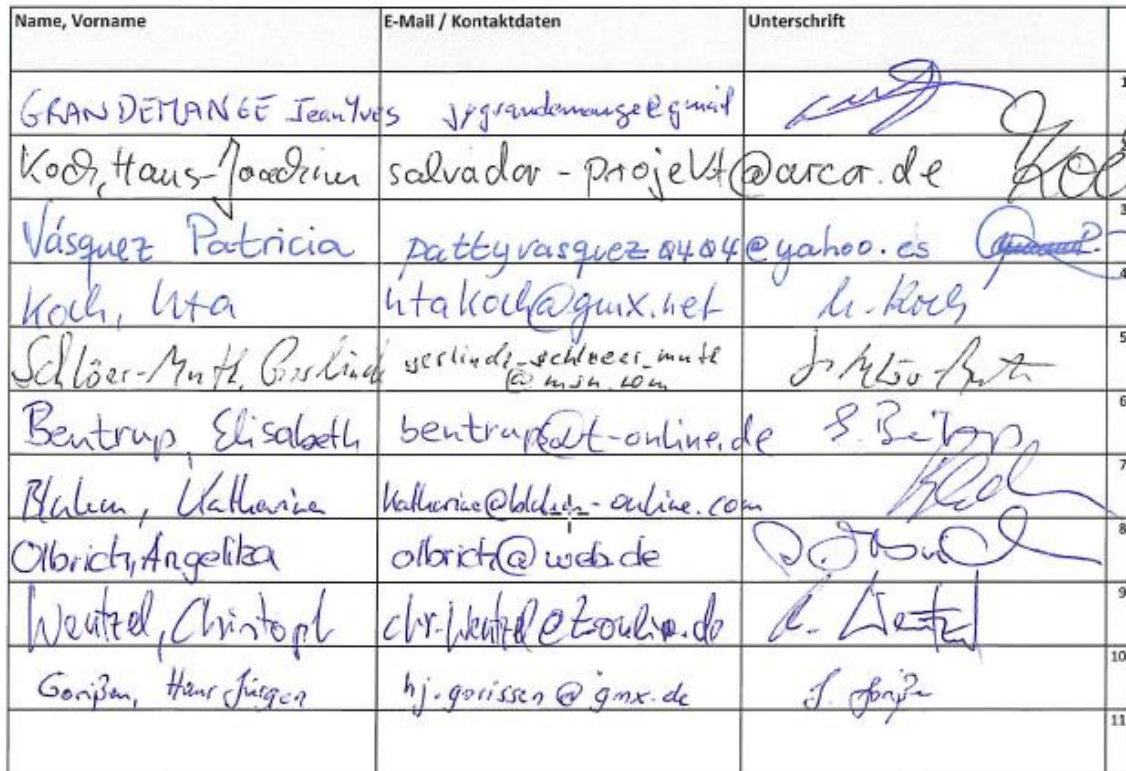 Name, Vorname E-Mail / Kontaktdaten Unterschrift
1
GRANDEMANGE JeanYves jygrandemange@gmail
Koch, Hans-Joachim salvador-projekt@arcor.de Koc
3
Vásquez Patricia pattyvasquez0404@yahoo.es
4
Koch, Uta utakoch@gmx.net U. Koch
5
Schlöer-Muth, Gerlinde gerlinde_schloeer_muth
@msn.com
6
Bentrup, Elisabeth bentrup@t-online.de E. Bentrup
7
Katharina
8
Olbrich, Angelika olbrich@web.de
9
Wentzel, Christoph chr.wentzel@t-online.de C. Wentzel
10
Gorißen, Hans Jürgen hj.gorissen@gmx.de J. Gorißen
11